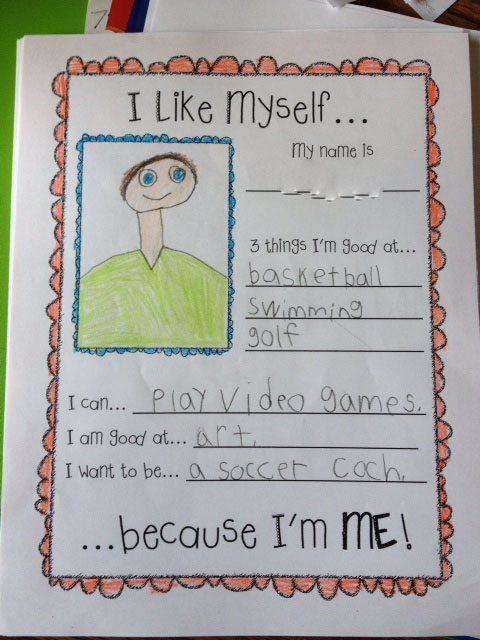 I Like Myself...
My name is
3 things I'm good at...
basketball
swimming
golf
I can... play video games.
I am good at... art.
I want to be... a soccer coch.
...because I'm ME!